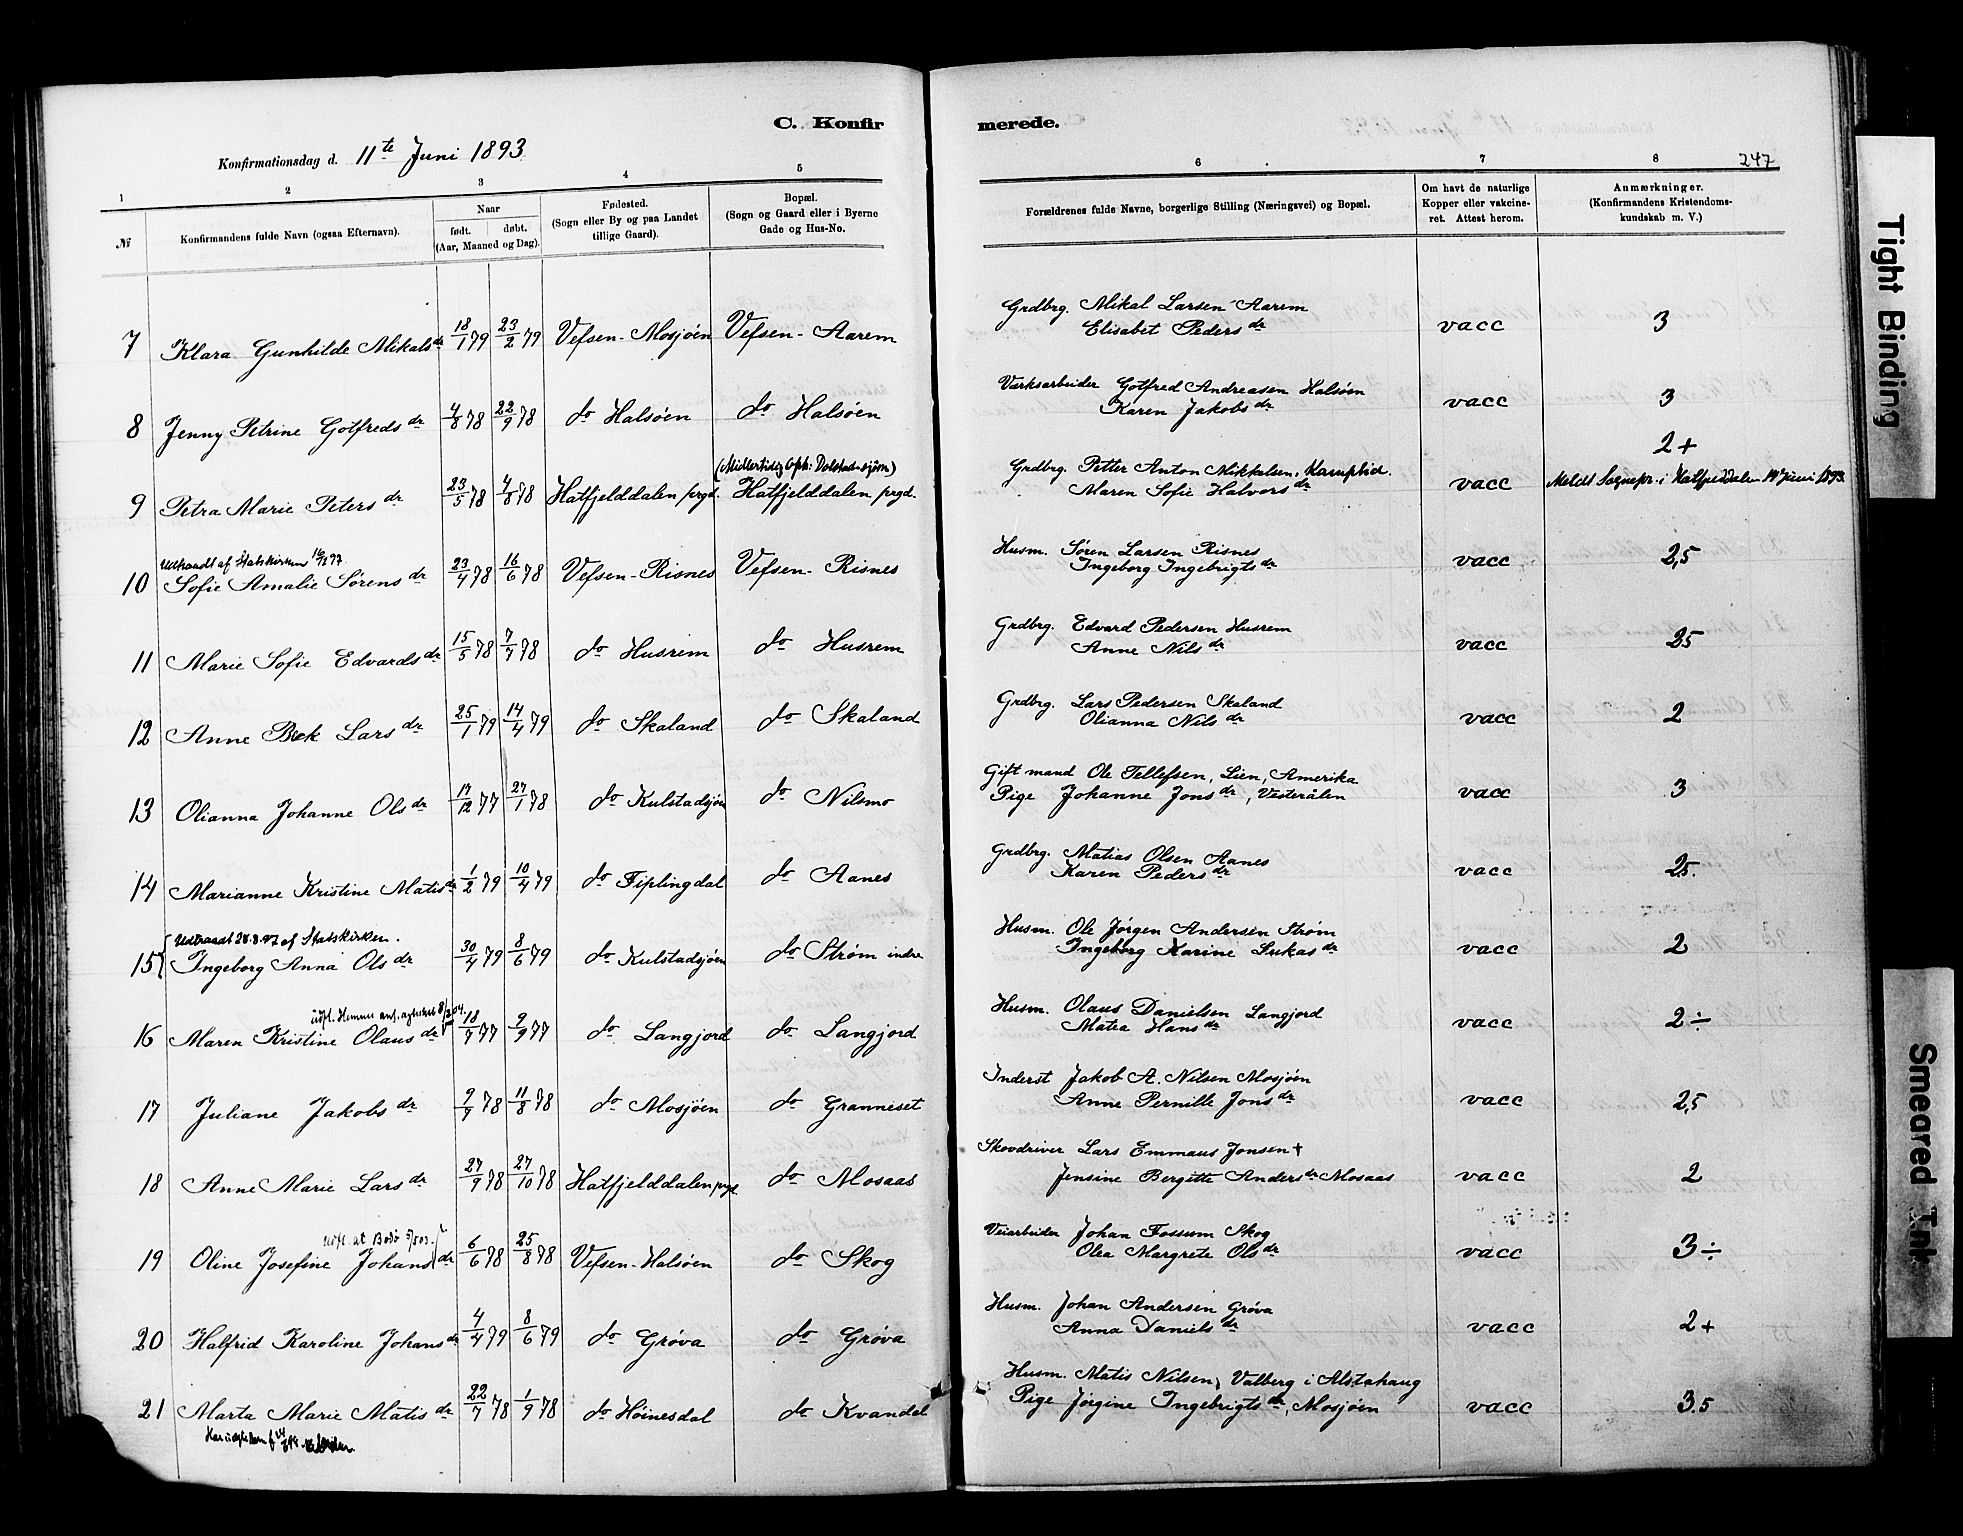 C. Konfirmerede.
Konfirmationsdag d. 11te Juni 1893
247
1 2 3 4 5 6 7 8
№ Konfirmandens fulde Navn (ogsaa Efternavn). Naar født. døbt. (Aar, Maaned og Dag). Fødested. (Sogn eller By og paa Landet tillige Gaard). Bopæl. (Sogn og Gaard eller i Byerne Gade og Hus-No. Forældrenes fulde Navne, borgerlige Stilling (Næringsvei) og Bopæl. Om havt de naturlige Kopper eller vakcineret. Attest herom. Anmærkninger. (Konfirmandens Kristendomskundskab m. V.)
7 Klara Gunhilde Mikalsdr 18/1 79 23/2 79 Vefsen-Mosjøen Vefsen-Aarem Grdbrg. Mikal Larsen Aarem vacc 3
Elisabet Pedersdr
8 Jenny Petrine Gotfredsdr 4/8 78 22/9 78 do Halsøen do Halsøen Værksarbeider Gotfred Andreasen Halsøen vacc 3
Karen Jakobsdr
(Midlertidig Oph: Dolstad-sjøen) 2+
9 Petra Marie Petersdr 23/5 78 4/8 78 Hatfjelddalen prgd. Hatfjelddalen prgd. Grdbrg. Petter Anton Mikkelsen, vacc Meldt Sognepr. i Hatfjelddalen 14 Juni 1893.
Maren Sofie Halvorsdr
Udtraadt af Statskirken
10 Sofie Amalie Sørensdr 23/4 78 16/6 78 Vefsen-Risnes Vefsen-Risnes Husm. Søren Larsen Risnes vacc 2,5
Ingeborg Ingebrigtsdr
11 Marie Sofie Edvardsdr 15/5 78 7/7 78 do Husrem do Husrem Grdbrg. Edvard Pedersen Husrem vacc 25
Anne Nilsdr
12 Anne Bek Larsdr 25/1 79 14/4 79 do Skaland do Skaland Grdbrg. Lars Pedersen Skaland vacc 2
Olianna Nilsdr
13 Olianna Johanne Olsdr 17/12 77 27/1 78 do Kulstadsjøen do Nilsmo Gift mand Ole Tellefsen, Lien, Amerika vacc 3
Pige Johanne Jonsdr, Vesterålen
14 Marianne Kristine Matisdr 1/2 79 10/4 79 do Fiplingdal do Aanes Grdbrg. Matias Olsen Aanes vacc 25.
Karen Pedersdr
Udtraadt 28.8.97 af Statskirken.
15 Ingeborg Anna Olsdr 30/4 79 8/6 79 do Kulstadsjøen do Strøm indre Husm. Ole Jørgen Andersen Strøm vacc 2
Ingeborg Karine Lukasdr
udfl. Hemnes
16 Maren Kristine Olausdr 18/7 77 9/9 77 do Langjord do Langjord Husm. Olaus Danielsen Langjord vacc 2÷
Matea Hansdr
17 Juliane Jakobsdr 9/7 78 11/8 78 do Mosjøen do Granneset Inderst Jakob A. Nilsen Mosjøen vacc 2,5
Anne Pernille Jonsdr
18 Anne Marie Larsdr 27/9 78 27/10 78 Hatfjelddalen prgd. do Mosaas Skovdriver Lars Emmaus Jonsen + vacc 2
Jensine Bergitte Andersdr Mosaas
Udfl. at Bodø
19 Oline Josefine Johansdr 6/6 78 25/8 78 Vefsen-Halsøen do Skog Veiarbeider Johan Fossum Skog vacc 3÷
Olea Margrete Olsdr
20 Halfrid Karoline Johansdr 4/4 79 8/6 79 do Grøva do Grøva Husm. Johan Andersen Grøva vacc 2+
Anna Danielsdr
21 Marta Marie Matisdr 22/7 78 1/9 78 do Høinesdal do Kvandal Husm. Matis Nilsen, Valberg i Alstahaug vacc 3.5
Pige Jørgine Ingebrigtsdr, Mosjøen
Tight Binding
Smeared Ink